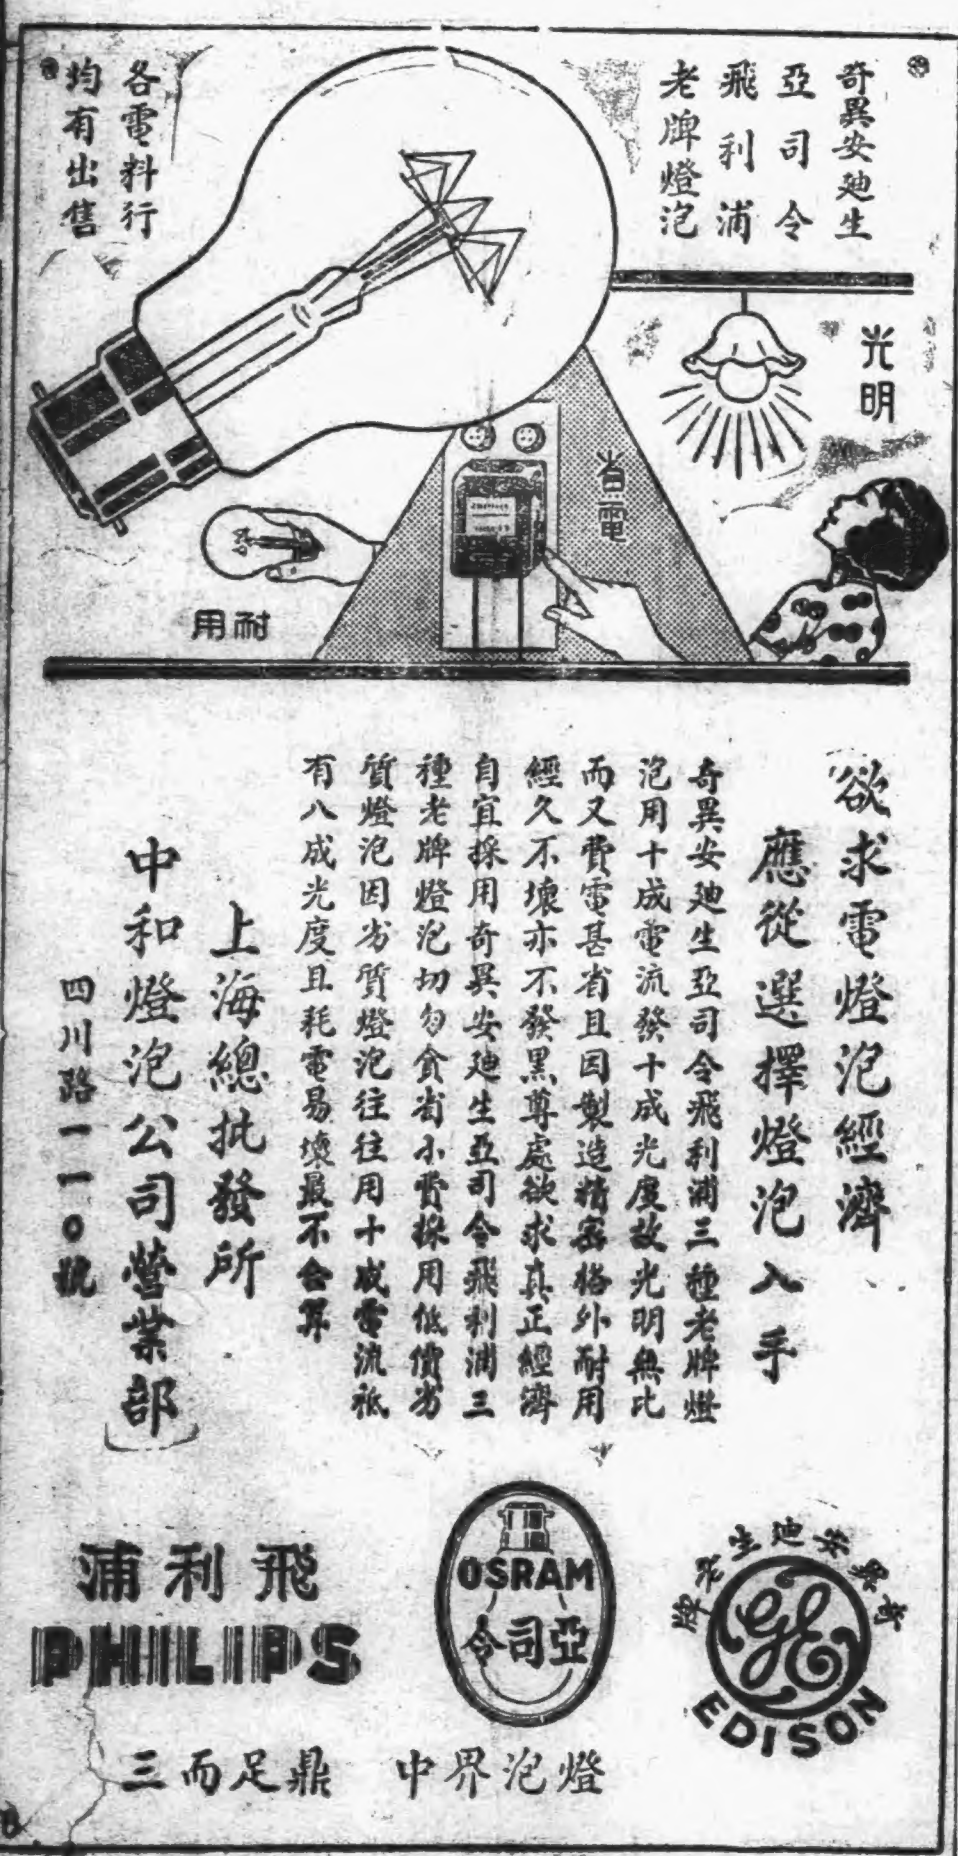 奇異安廸生
亞司令
飛利浦
老牌燈泡
各電料行
均有出售
光明
省電
耐用
欲求電燈泡經濟
應從選擇燈泡入手
奇異安廸生亞司令飛利浦三種老牌燈
泡用十成電流發十成光度故光明無比
而又費電甚省且因製造精密格外耐用
經久不壞亦不發黑尊處欲求真正經濟
自宜採用奇異安廸生亞司令飛利浦三
種老牌燈泡切勿貪省小費採用低價劣
質燈泡因劣質燈泡往往用十成電流祗
有八成光度且耗電易壞最不合算
上海總批發所
中和燈泡公司營業部
四川路一一〇號
奇異安迪生老牌
GE
EDISON
OSRAM
亞司令
飛利浦
PHILIPS
燈泡界中
鼎足而三